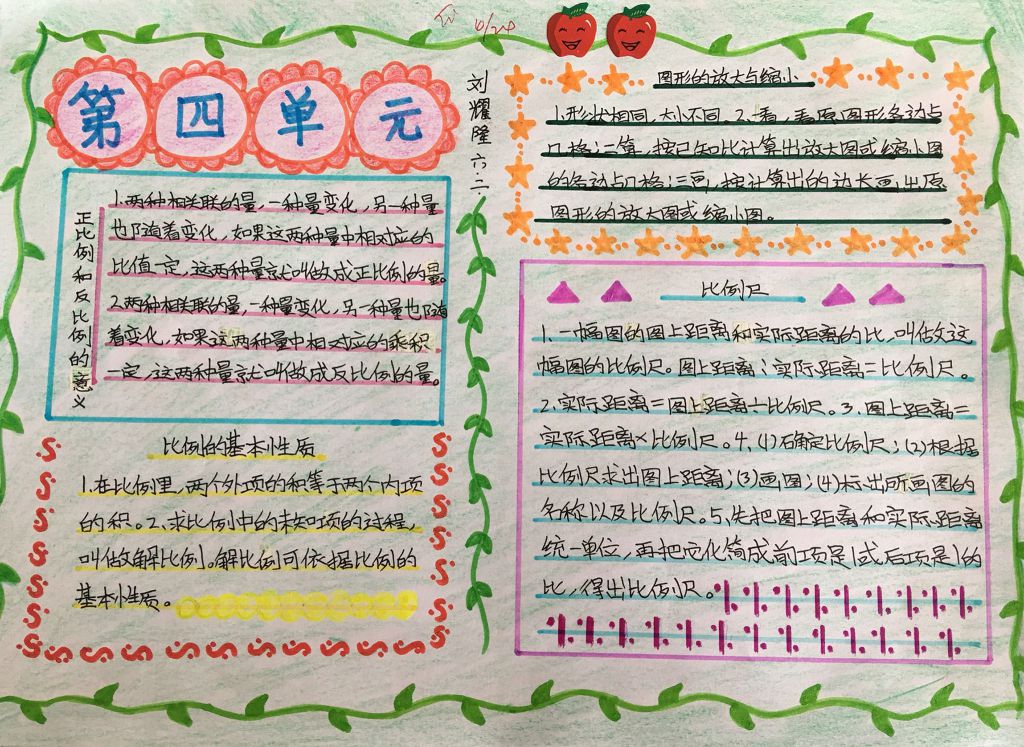 4/24
第四单元
正比例和反比例的意义
1.两种相关联的量,一种量变化,另一种量
也随着变化,如果这两种量中相对应的
比值一定,这两种量就叫做成正比例的量。
2.两种相关联的量,一种量变化,另一种量也随
着变化,如果这两种量中相对应的乘积
一定,这两种量就叫做成反比例的量。
比例的基本性质
1.在比例里,两个外项的和等于两个内项
的积。2.求比例中的未知项的过程,
叫做解比例。解比例可依据比例的
基本性质。
刘耀隆 六.二.
图形的放大与缩小
1.形状相同,大小不同。2.一看,看原图形各边占
几格;二算,按已知比计算出放大图或缩小图
的各边占几格;三画,按计算出的边长画出原
图形的放大图或缩小图。
比例尺
1.一幅图的图上距离和实际距离的比,叫做这
幅图的比例尺。图上距离:实际距离=比例尺。
2.实际距离=图上距离÷比例尺。3.图上距离=
实际距离×比例尺。4.(1)确定比例尺;(2)根据
比例尺求出图上距离;(3)画图;(4)标出所画图的
名称以及比例尺。5.先把图上距离和实际距离
统一单位,再把它化简成前项是1或后项是1的
比,得出比例尺。